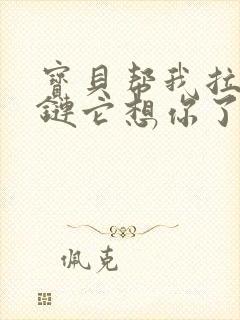 寶貝幫我拉
鏈它想你了
佩克